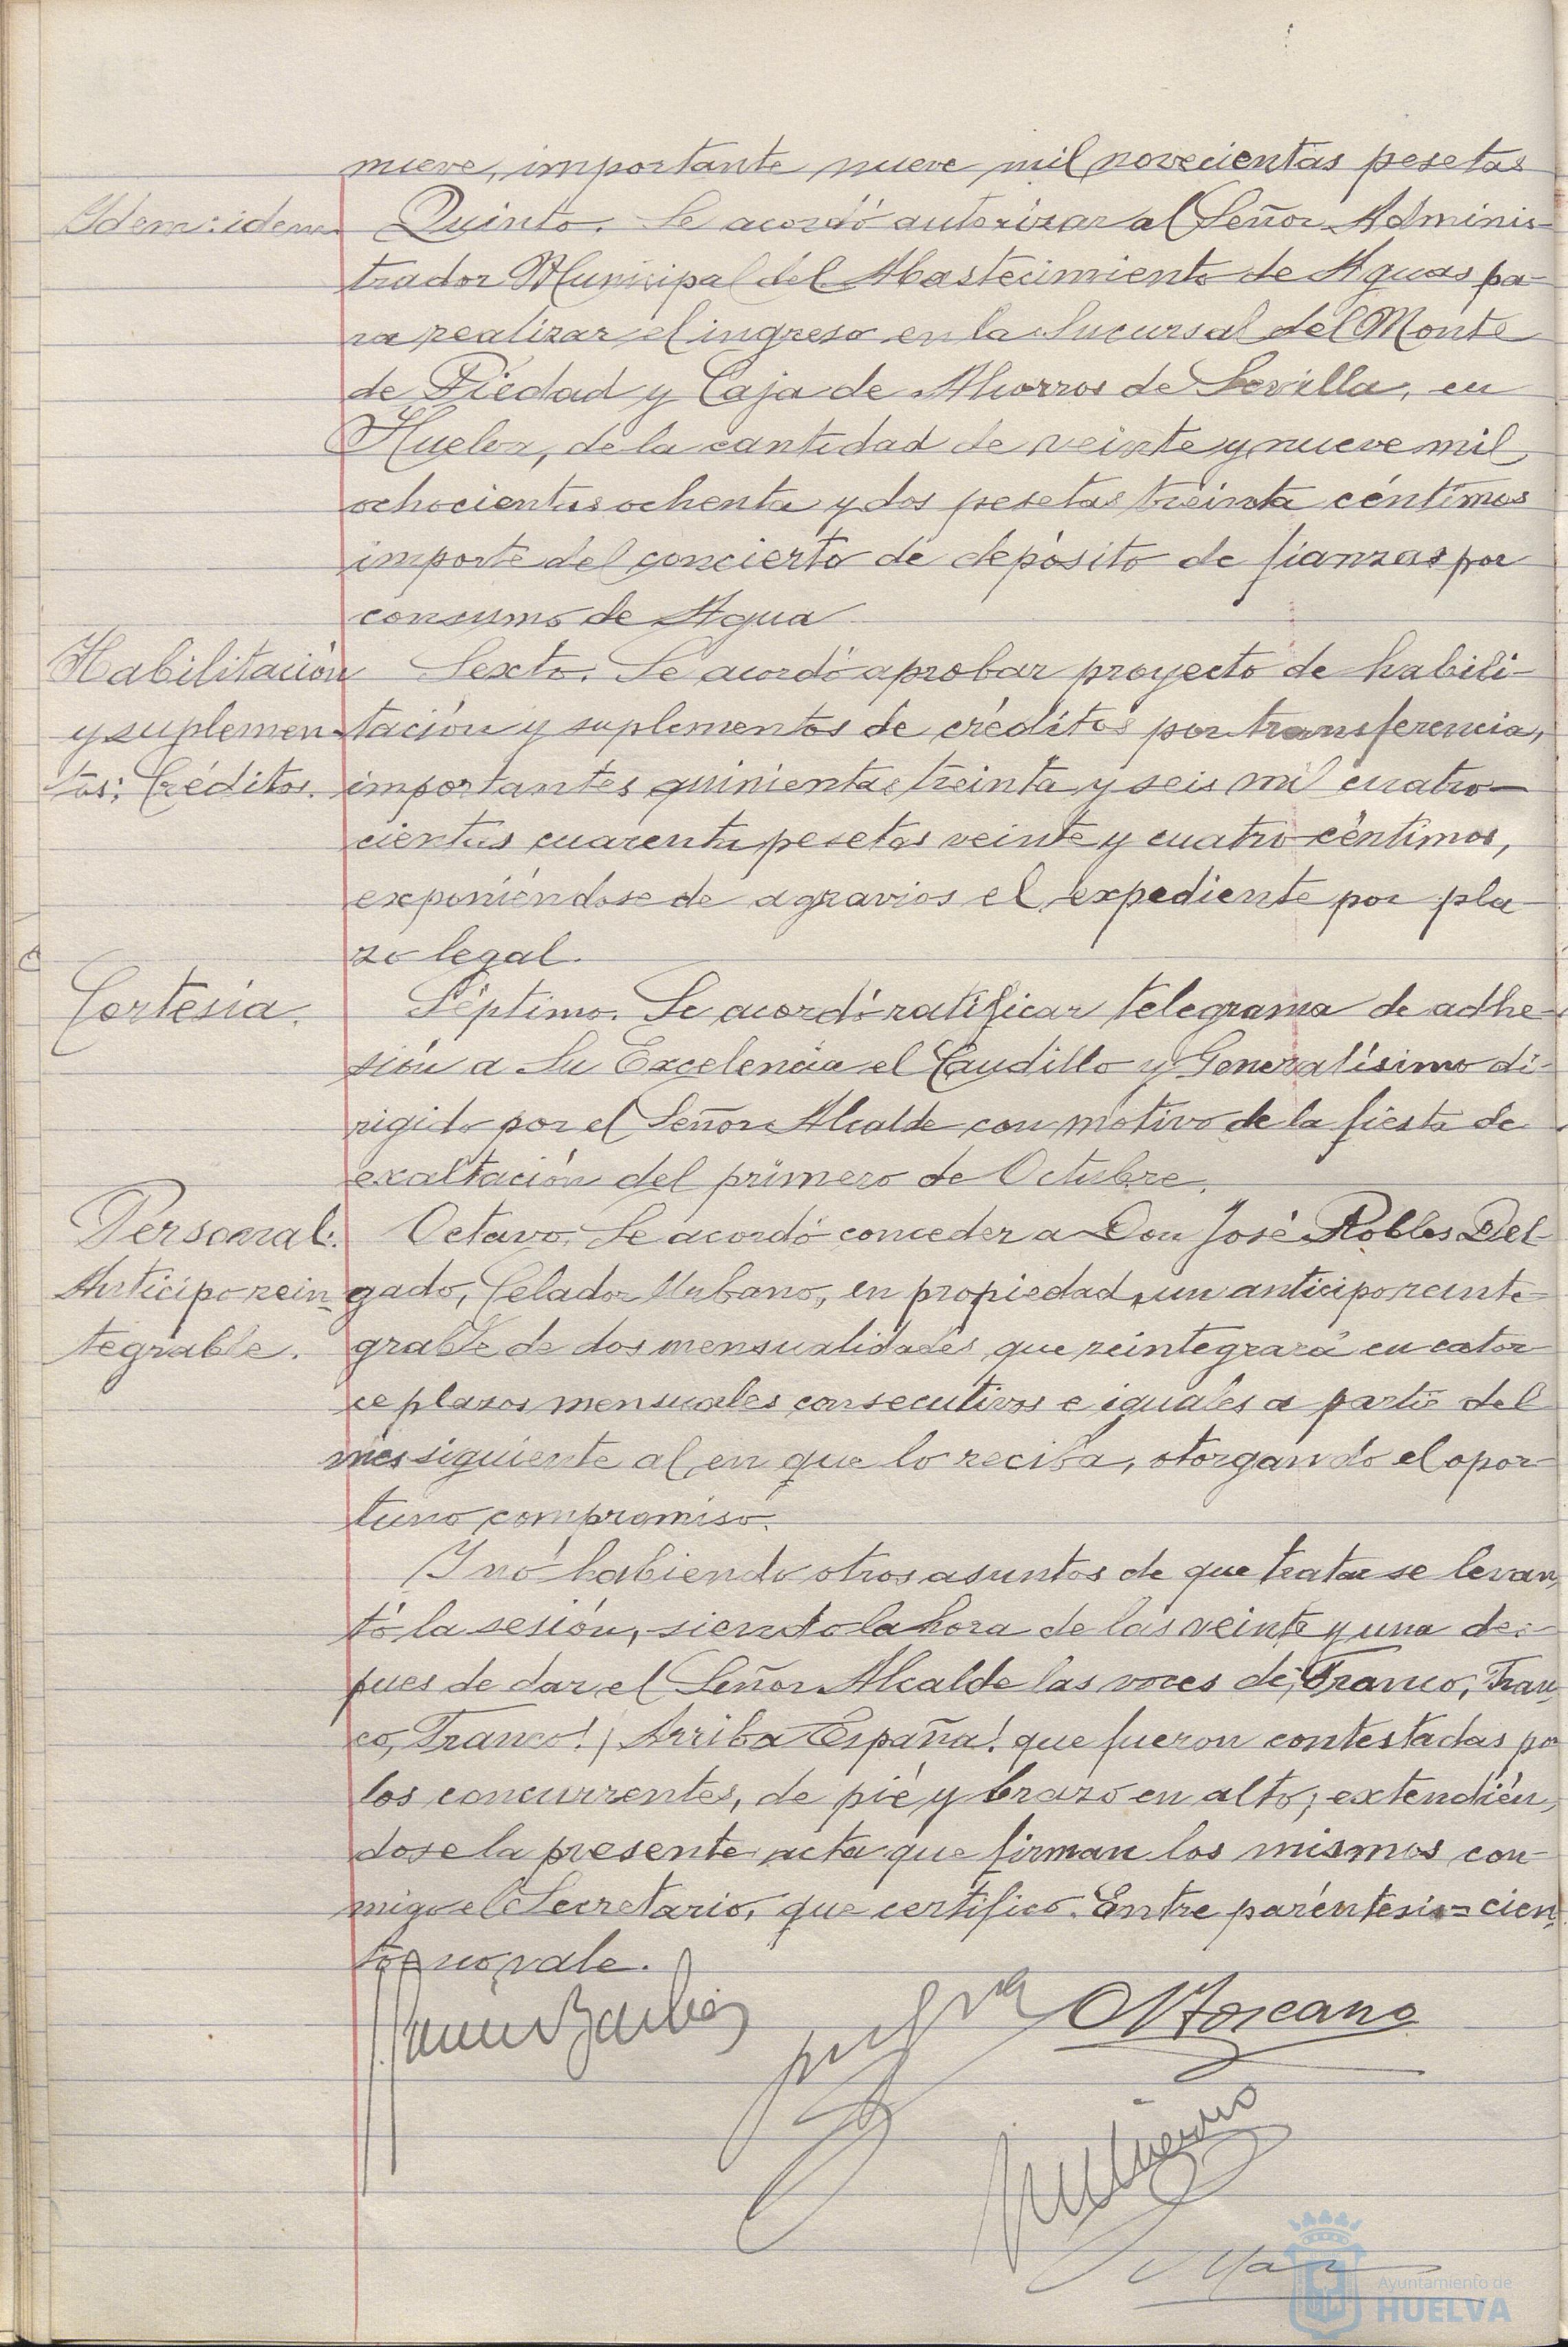 nueve, importante nueve mil novecientas pesetas
Idem: idem. Quinto. Se acordó autorizar al Señor Adminis-
trador Municipal del Abastecimiento de Aguas pa-
ra realizar el ingreso en la Sucursal del Monte
de Piedad y Caja de Ahorros de Sevilla, en
Huelva, de la cantidad de veinte y nueve mil
ochocientas ochenta y dos pesetas treinta céntimos
importe del concierto de depósito de fianzas por
consumo de Agua
Habilitación Sexto. Se acordó aprobar proyecto de habili-
y suplemen- tación y suplementos de créditos por transferencia,
tos: Créditos. importantes quinientas treinta y seis mil cuatro-
cientas cuarenta pesetas veinte y cuatro céntimos,
exponiéndose de agravios el expediente por pla-
zo legal.
Cortesía. Séptimo. Se acordó ratificar telegrama de adhe-
sión a Su Excelencia el Caudillo y Generalísimo di-
rigido por el Señor Alcalde con motivo de la fiesta de
exaltación del primero de Octubre.
Personal: Octavo. Se acordó conceder a Don José Robles Del-
Anticipo rein- gado, Celador Urbano, en propiedad, un anticipo reinte-
tegrable. grable de dos mensualidades que reintegrará en cator-
ce plazos mensuales consecutivos e iguales a partir del
mes siguiente al en que lo reciba, otorgando el opor-
tuno compromiso.
Y no habiendo otros asuntos de que tratar se levan-
tó la sesión, siendo la hora de las veinte y una des-
pues de dar el Señor Alcalde las voces de ¡Franco, Fran-
co, Franco! ¡Arriba España! que fueron contestadas por
los concurrentes, de pié y brazo en alto; extendién-
dose la presente acta que firman los mismos con-
migo el Secretario, que certifico. Entre paréntesis = cien-
to = no vale.
Toscano
Ayuntamiento de
HUELVA